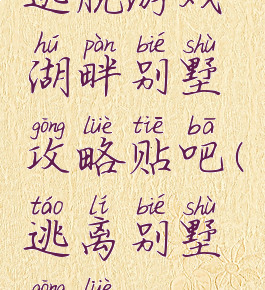 逃脱游戏
hú pàn bié shù
湖畔别墅
gōng lüè tiē bā
攻略贴吧(
táo lí bié shù
逃离别墅
gōng lüè